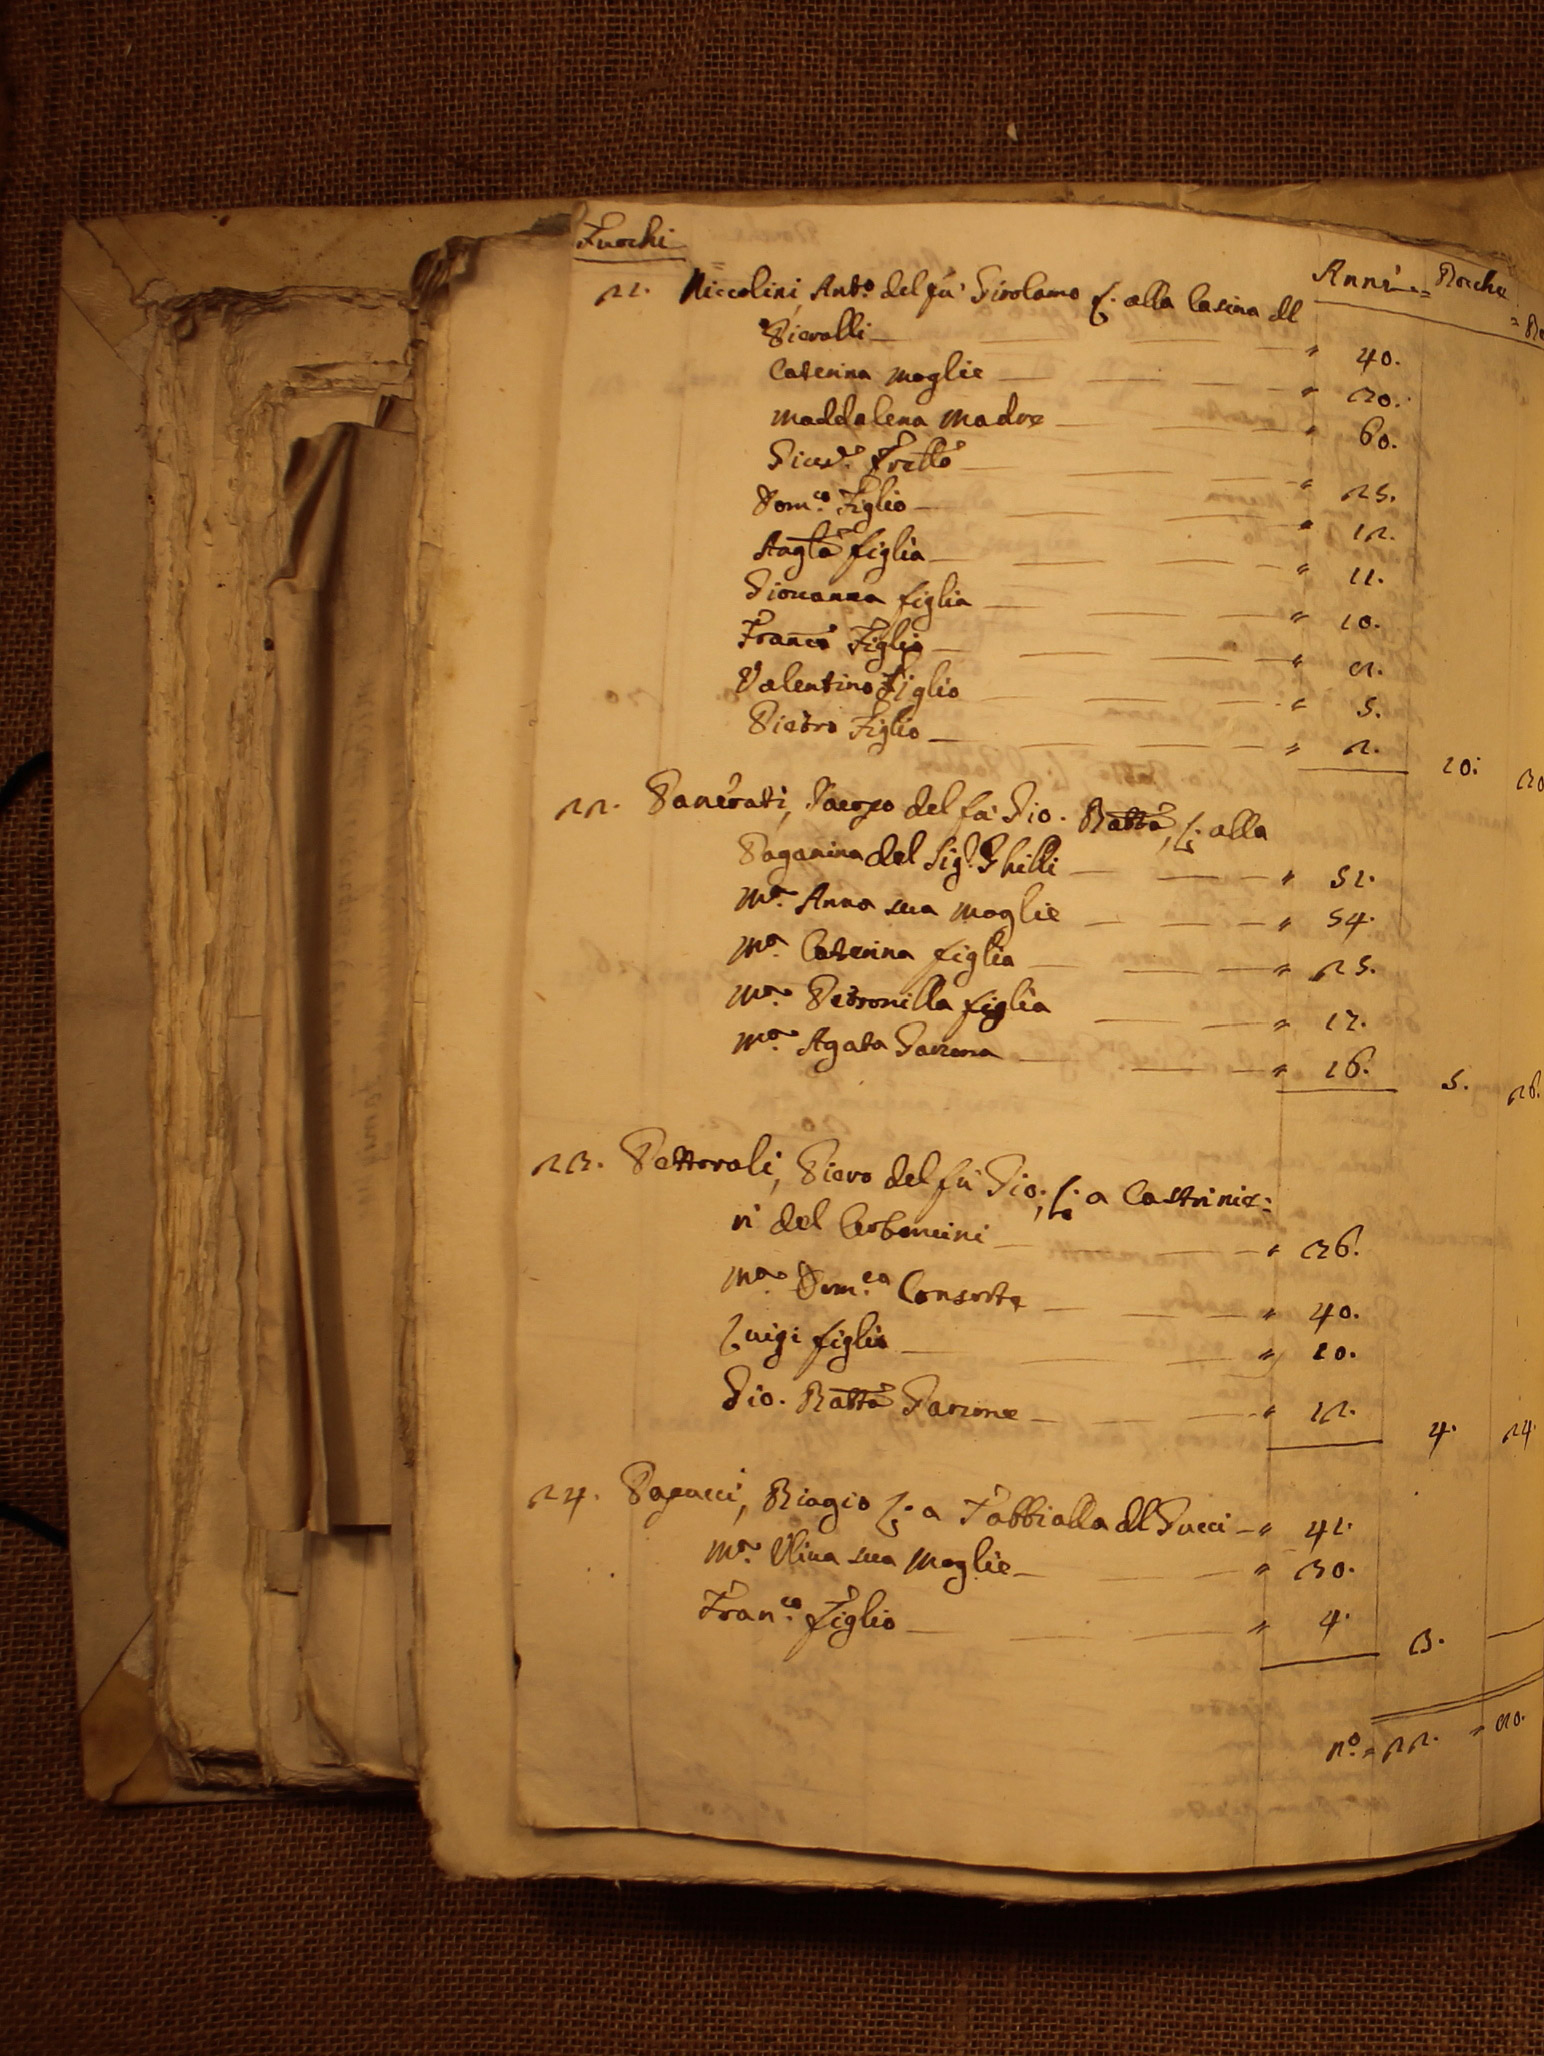 Fuochi
Anni = Bocche = Be
21. Niccolini, Ant.o del fù Girolamo L. alla Casina dl
Pieralli — " 40.
Caterina moglie — " 30.
Maddalena Madre — " 60.
Frállo — " 25.
Dom.co Figlio — " 12.
Figlia — " 11.
Giovanna figlia — " 10.
Franco Figlio —
Valentino Figlio — " 5.
Pietro Figlio — " 2. 10.
22. Pancrati, Jacopo del fù Gio. Batta, L. alla
Paganina del Sig.r Ghilli — " 51.
M.a Anna sua Moglie — " 54.
M.a Caterina figlia — " 25.
M.a Petronilla figlia — " 17.
M.a Agata Garzona — " 16. 5. 26.
23. Pettorali, Piero del fù Gio., L. a Castrinie:
ri del — " 36.
M.a Dom.ca Consorte — " 40.
Luigi figlio — " 10.
Gio. Batta Garzone — " 12. 4. 24.
24. Papucci, Biagio L. a Fabbialla dl Pucci — " 41.
M.a Uliva sua Moglie — " 30.
Fran.co figlio — " 4. 3.
n.o = 22. =